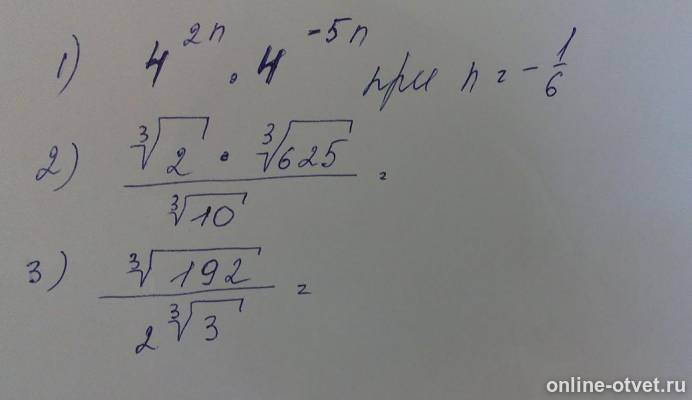 1) 4^{2n} · 4^{-5n} при n = -\frac{1}{6}
2) \frac{\sqrt[3]{2} · \sqrt[3]{625}}{\sqrt[3]{10}} =
3) \frac{\sqrt[3]{192}}{2\sqrt[3]{3}} =
online-otvet.ru